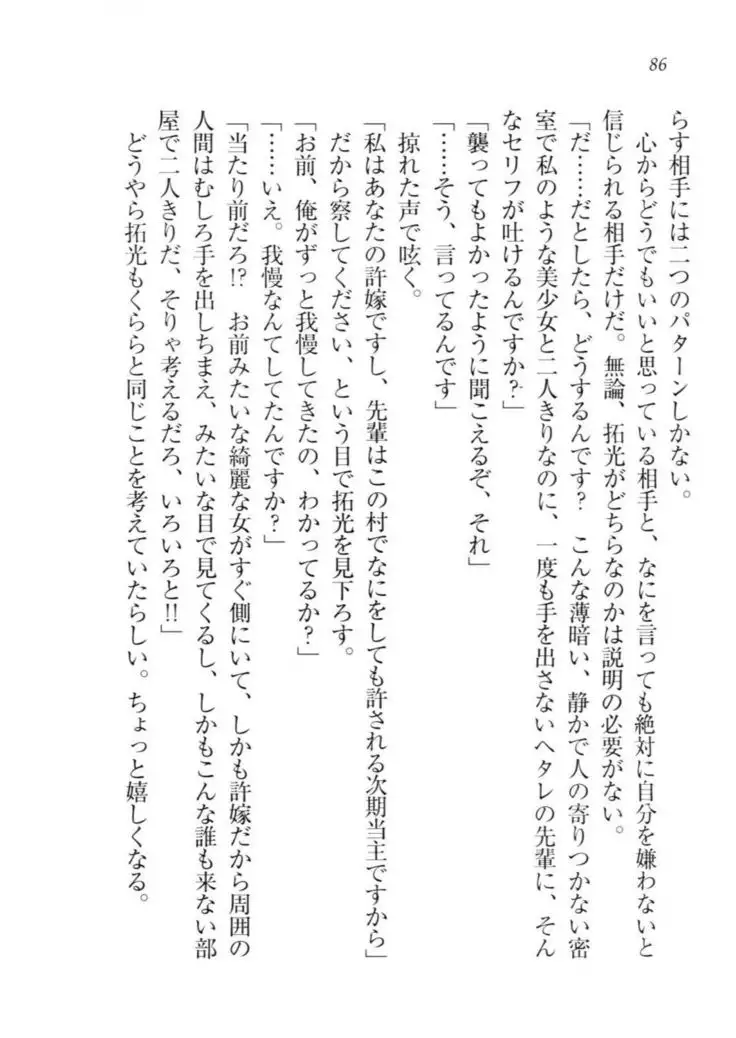 86
らす相手には二つのパターンしかない。
　心からどうでもいいと思っている相手と、なにを言っても絶対に自分を嫌わないと
信じられる相手だけだ。無論、拓光がどちらなのかは説明の必要がない。
「だ……だとしたら、どうするんです？　こんな薄暗い、静かで人の寄りつかない密
室で私のような美少女と二人きりなのに、一度も手を出さないヘタレの先輩に、そん
なセリフが吐けるんですか？」
「襲ってもよかったように聞こえるぞ、それ」
「……そう、言ってるんです」
　掠れた声で呟く。
「私はあなたの許嫁ですし、先輩はこの村でなにをしても許される次期当主ですから」
　だから察してください、という目で拓光を見下ろす。
「お前、俺がずっと我慢してきたの、わかってるか？」
「……いえ。我慢なんてしてたんですか？」
「当たり前だろ!?　お前みたいな綺麗な女がすぐ側にいて、しかも許嫁だから周囲の
人間はむしろ手を出しちまえ、みたいな目で見てくるし、しかもこんな誰も来ない部
屋で二人きりだ、そりゃ考えるだろ、いろいろと!!」
　どうやら拓光もくららと同じことを考えていたらしい。ちょっと嬉しくなる。